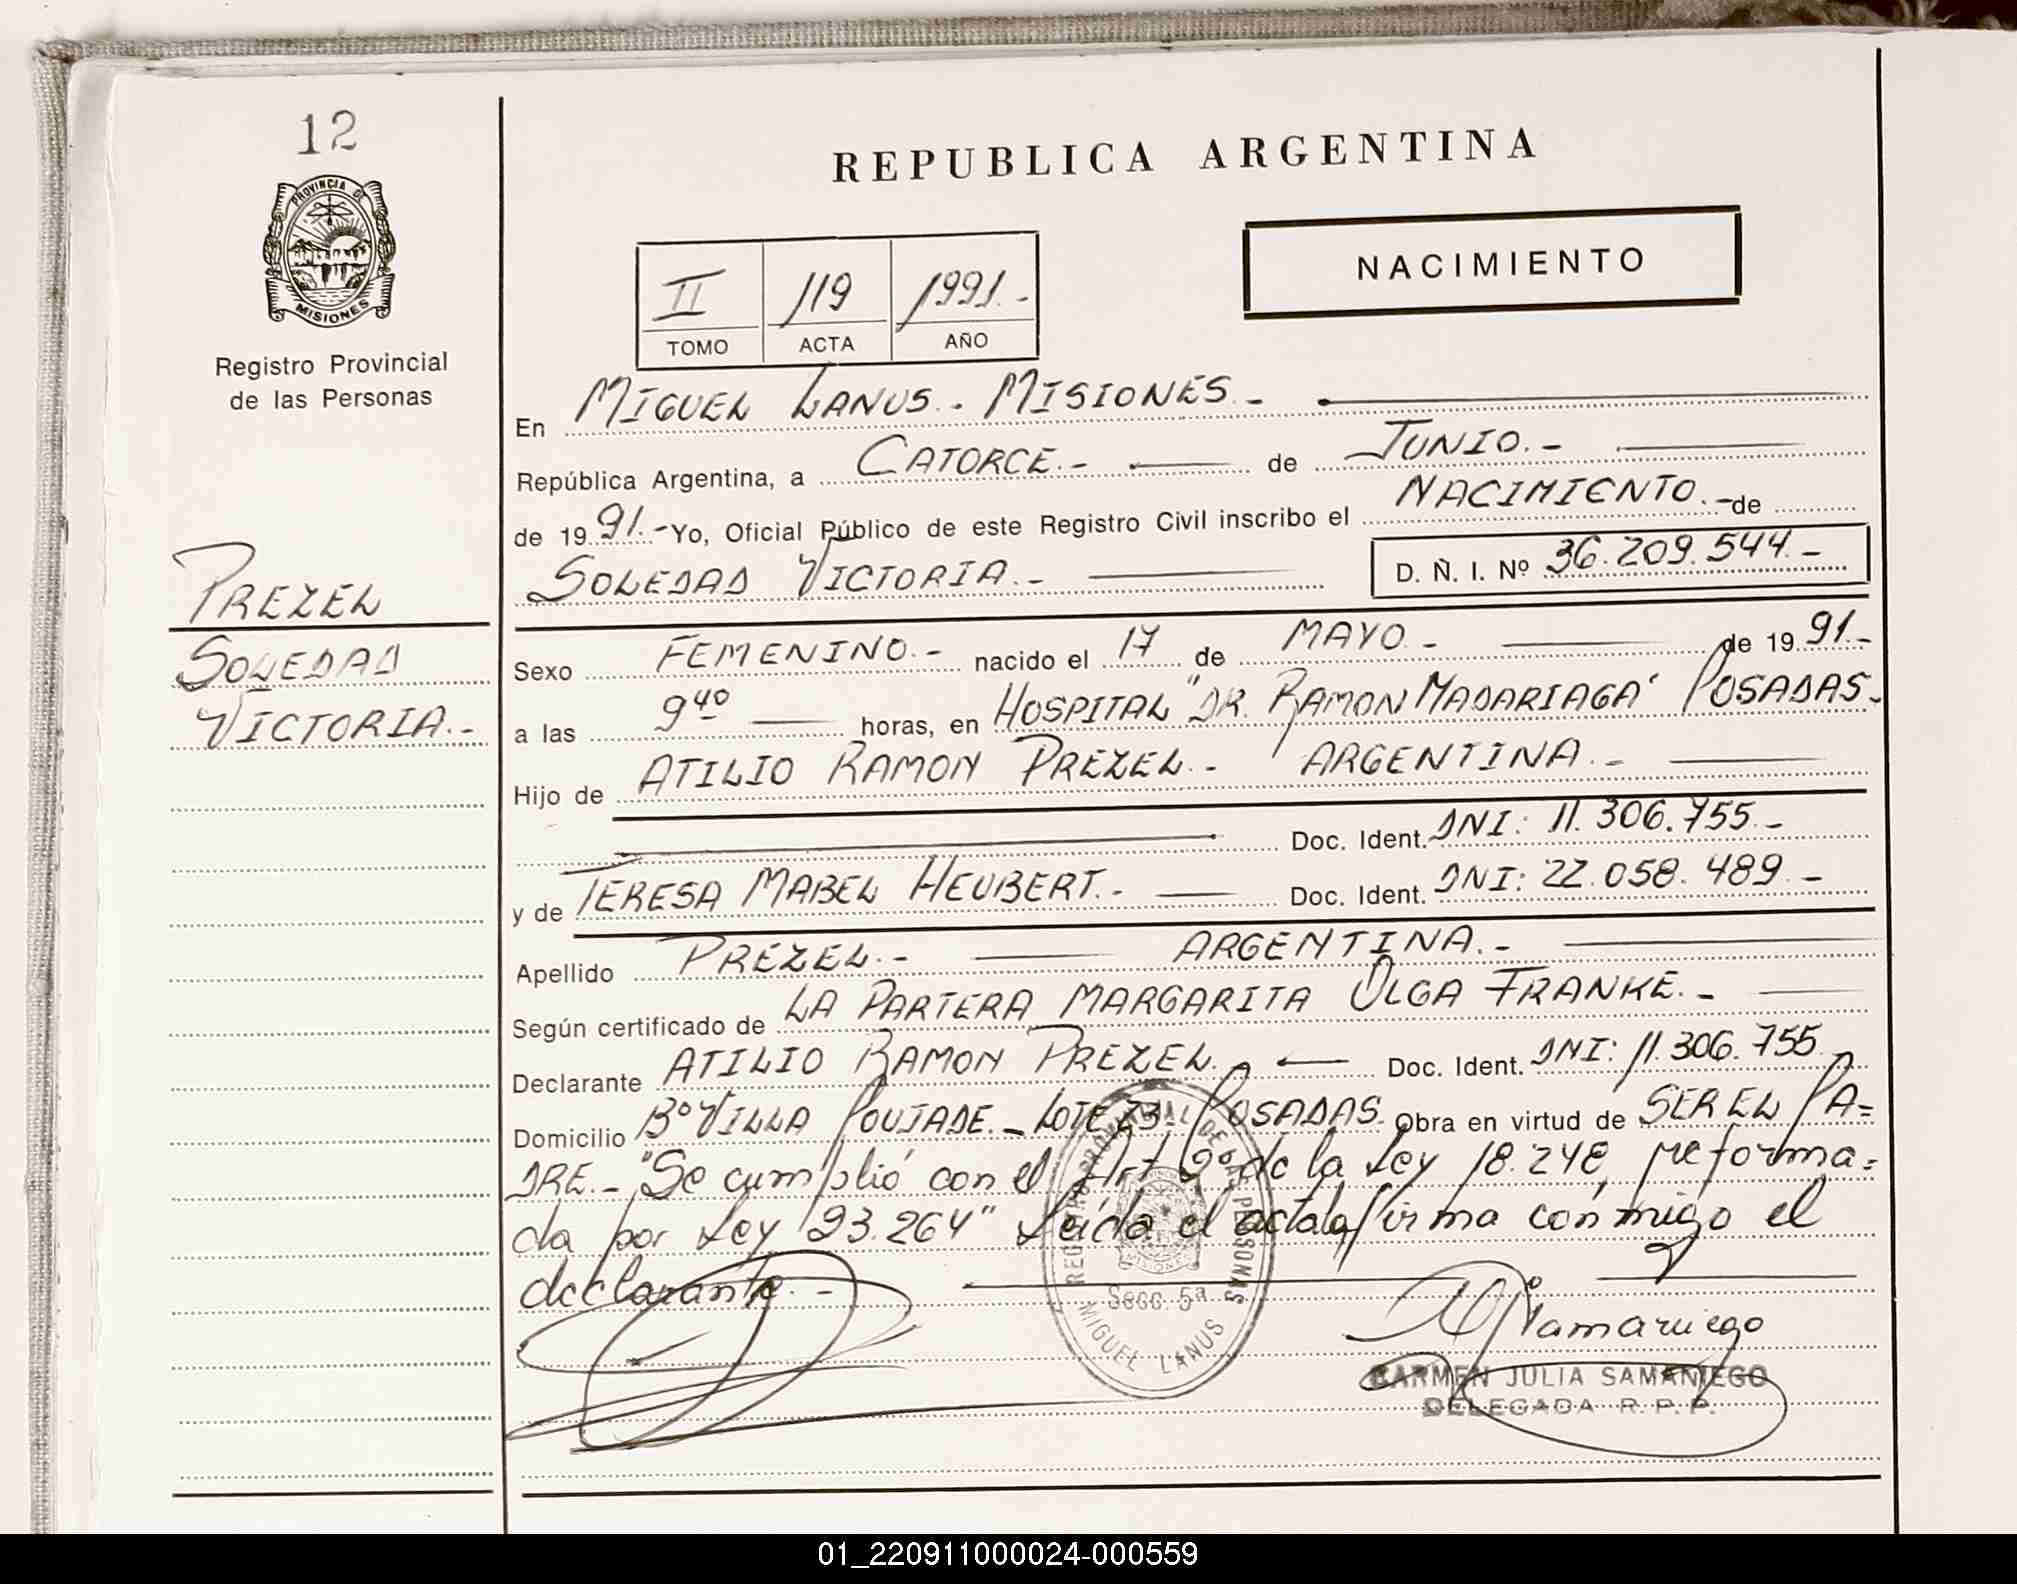 12
REPUBLICA ARGENTINA
PROVINCIA DE
MISIONES
Registro Provincial
de las Personas
NACIMIENTO
II 119 1991.-
TOMO ACTA AÑO
En MIGUEL LANUS.- MISIONES.-
República Argentina, a CATORCE.- de JUNIO.-
de 1991.- Yo, Oficial Público de este Registro Civil inscribo el NACIMIENTO.- de
SOLEDAD VICTORIA.- D. Ñ. I. Nº 36.209.544.-
PREZEL
SOLEDAD
VICTORIA.-
Sexo FEMENINO.- nacido el 17 de MAYO.- de 1991.-
a las 9 40 horas, en HOSPITAL "DR. RAMON MADARIAGA" POSADAS.-
Hijo de ATILIO RAMON PREZEL.- ARGENTINA.-
Doc. Ident. DNI: 11.306.755.-
y de TERESA MABEL HEUBERT.- Doc. Ident. DNI: 22.058.489.-
Apellido PREZEL.- ARGENTINA.-
Según certificado de LA PARTERA MARGARITA OLGA FRANKE.-
Declarante ATILIO RAMON PREZEL.- Doc. Ident. DNI: 11.306.755.
Domicilio Bº VILLA POUJADE.- LOTE 23- POSADAS. Obra en virtud de SER EL PA=
DRE.- "Se cumplió con el Art 9º de la Ley 18.248, reforma=
da por Ley 23.264" Leída el acta la firma conmigo el
declarante.-
REGISTRO PROVINCIAL DE LAS PERSONAS
MISIONES
Secc. 5ª
MIGUEL LANUS
Samaniego
CARMEN JULIA SAMANIEGO
DELEGADA R. P. P.
01_220911000024-000559